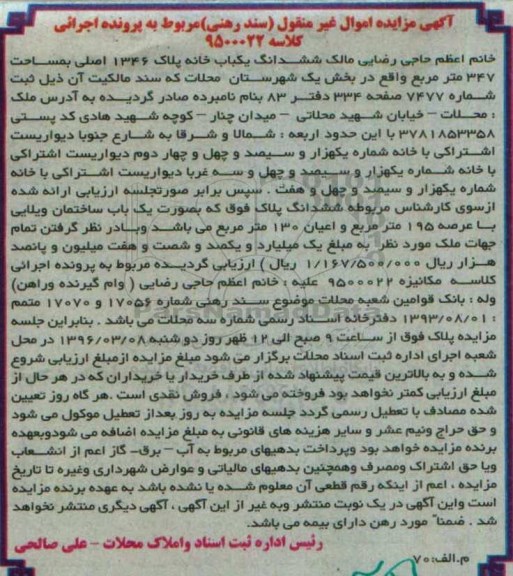 آگهی مزایده اموال غیر منقول (سند رهنی) مربوط به پرونده اجرائی
کلاسه ۹۵۰۰۰۲۲
خانم اعظم حاجی رضایی مالک ششدانگ یکباب خانه پلاک ۱۳۴۶ اصلی بمساحت
۳۴۷ متر مربع واقع در بخش یک شهرستان محلات که سند مالکیت آن ذیل ثبت
شماره ۷۴۷۷ صفحه ۳۳۴ دفتر ۸۳ بنام نامبرده صادر گردیده به آدرس ملک
: محلات – خیابان شهید محلاتی – میدان چنار – کوچه شهید هادی کد پستی
۳۷۸۱۸۵۳۳۵۸ با این حدود اربعه : شمالا و شرقا به شارع جنوبا دیواریست
اشتراکی با خانه شماره یکهزار و سیصد و چهل و چهار دوم دیواریست اشتراکی
با خانه شماره یکهزار و سیصد و چهل و سه غربا دیواریست اشتراکی با خانه
شماره یکهزار و سیصد و چهل و هفت . سپس برابر صورتجلسه ارزیابی ارائه شده
ازسوی کارشناس مربوطه ششدانگ پلاک فوق که بصورت یک باب ساختمان ویلایی
با عرصه ۱۹۵ متر مربع و اعیان ۱۳۰ متر مربع می باشد وبادر نظر گرفتن تمام
جهات ملک مورد نظر به مبلغ یک میلیارد و یکصد و شصت و هفت میلیون و پانصد
هزار ریال ۱/۱۶۷/۵۰۰/۰۰۰ ریال ) ارزیابی گردیده مربوط به پرونده اجرائی
کلاسه مکانیزه ۹۵۰۰۰۲۲ علیه : خانم اعظم حاجی رضایی ( وام گیرنده وراهن)
وله : بانک قوامین شعبه محلات موضوع سند رهنی شماره ۱۷۰۵۶ و ۱۷۰۷۰ متمم
: ۱۳۹۳/۰۸/۰۱ دفترخانه اسناد رسمی شماره سه محلات می باشد . بنابراین جلسه
مزایده پلاک فوق از ساعت ۹ صبح الی ۱۲ ظهر روز دو شنبه ۱۳۹۶/۰۳/۰۸ در محل
شعبه اجرای اداره ثبت اسناد محلات برگزار می شود مبلغ مزایده ازمبلغ ارزیابی شروع
شده و به بالاترین قیمت پیشنهاد شده از طرف خریدار یا خریداران که در هر حال از
مبلغ ارزیابی کمتر نخواهد بود فروخته می شود , فروش نقدی است .هر گاه روز تعیین
شده مصادف با تعطیل رسمی گردد جلسه مزایده به روز بعداز تعطیل موکول می شود
و حق حراج ونیم عشر و سایر هزینه های قانونی به مبلغ مزایده اضافه می شودوبعهده
برنده مزایده خواهد بود وپرداخت بدهیهای مربوط به آب – برق- گاز اعم از انشعاب
ویا حق اشتراک ومصرف وهمچنین بدهیهای مالیاتی و عوارض شهرداری وغیره تا تاریخ
مزایده ، اعم از اینکه رقم قطعی آن معلوم شده یا نشده باشد به عهده برنده مزایده
است واین آگهی در یک نوبت منتشر وبه غیر از این آگهی ، آگهی دیگری منتشر نخواهد
شد . ضمناً مورد رهن دارای بیمه می باشد.
رئیس اداره ثبت اسناد واملاک محلات – علی صالحی
م.الف:۷۰